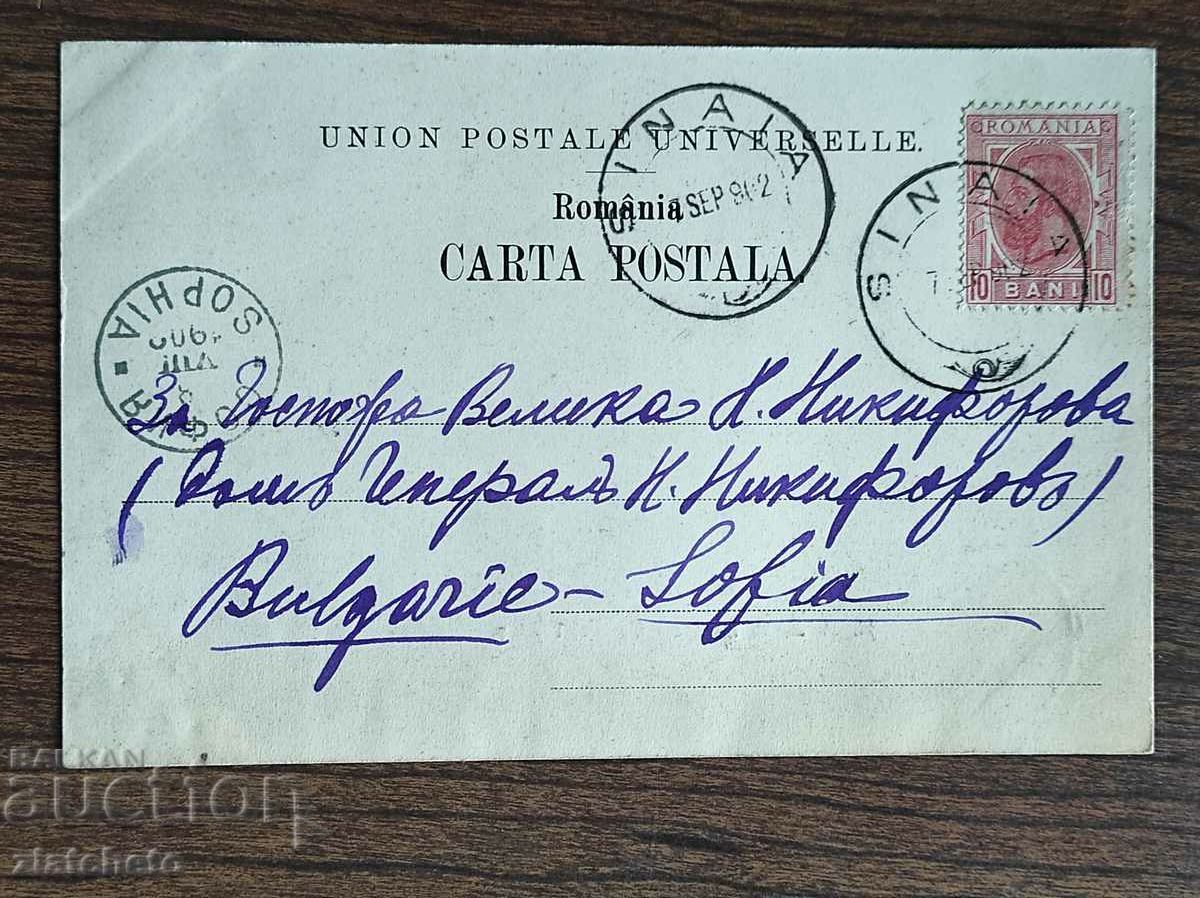 UNION POSTALE UNIVERSELLE.
România
CARTA POSTALA.
SINAIA
SEP 902
ROMANIA
10 BANI 10
SINAIA
SOPHIA
VIII
За Госпожа Велика Н. Никифорова
(Домъ Генералъ Н. Никифоровъ)
Bulgarie – Sofia
BALKAN
auction
zlatcheto